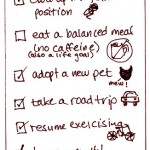 position
eat a balanced meal
(no caffeine)
(also a life goal)
adopt a new pet
mew!
take a road trip
resume exercising